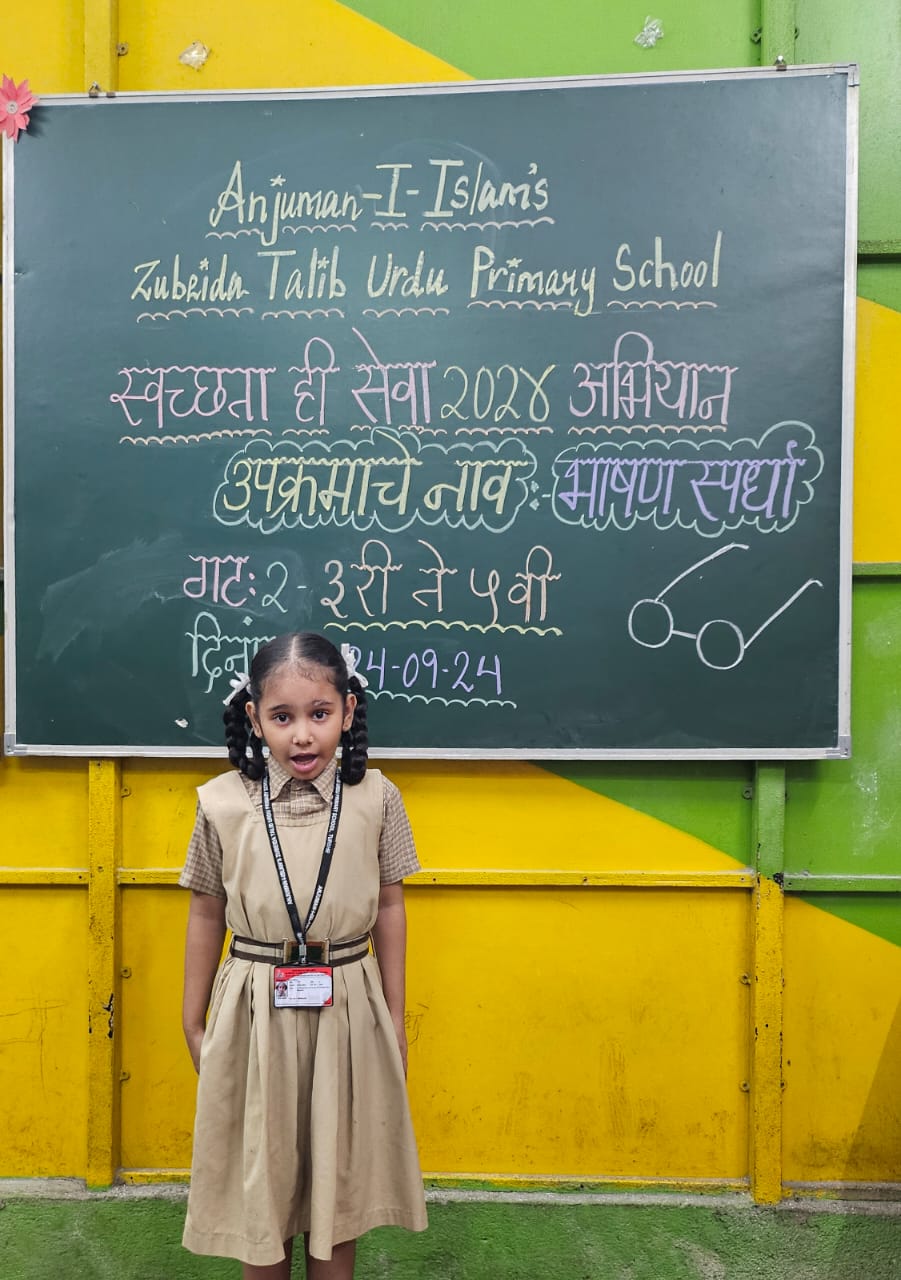 Anjuman-I-Islam's
Zubeida Talib Urdu Primary School
स्वच्छता ही सेवा २०२४ अभियान
उपक्रमाचे नाव :- भाषण स्पर्धा
गट: २- ३री ते ५वी
24-09-24